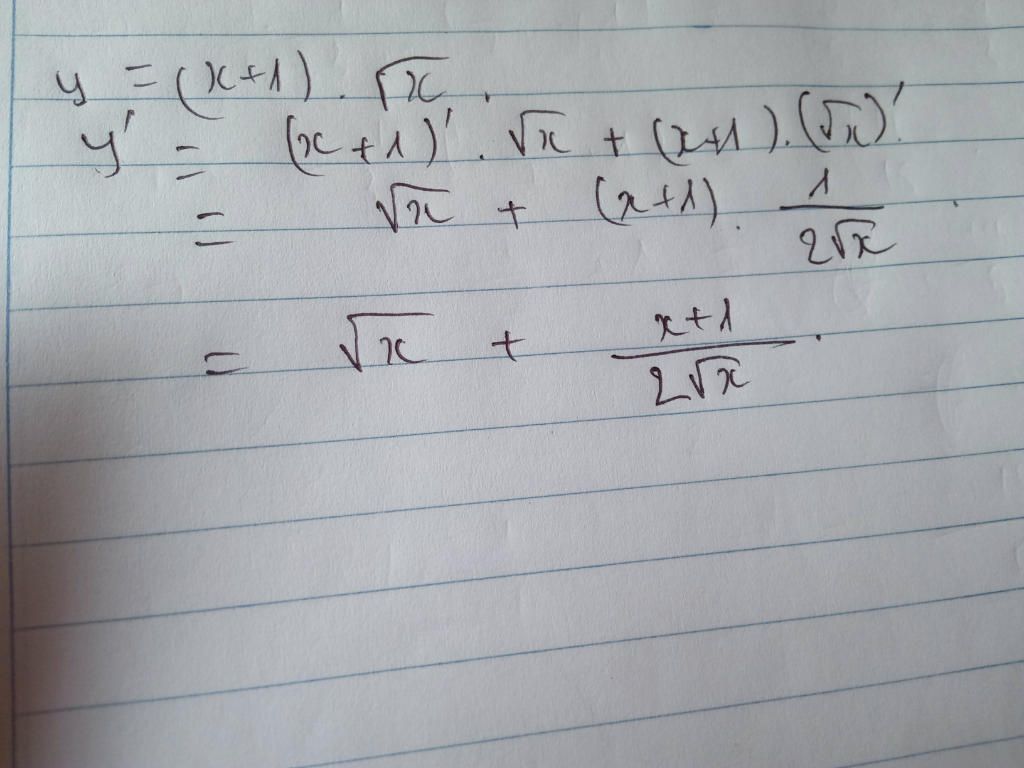 y = (x+1) . √x .
y' = (x+1)' . √x + (x+1).(√x)'.
= √x + (x+1). 1/(2√x) .
= √x + (x+1)/(2√x) .